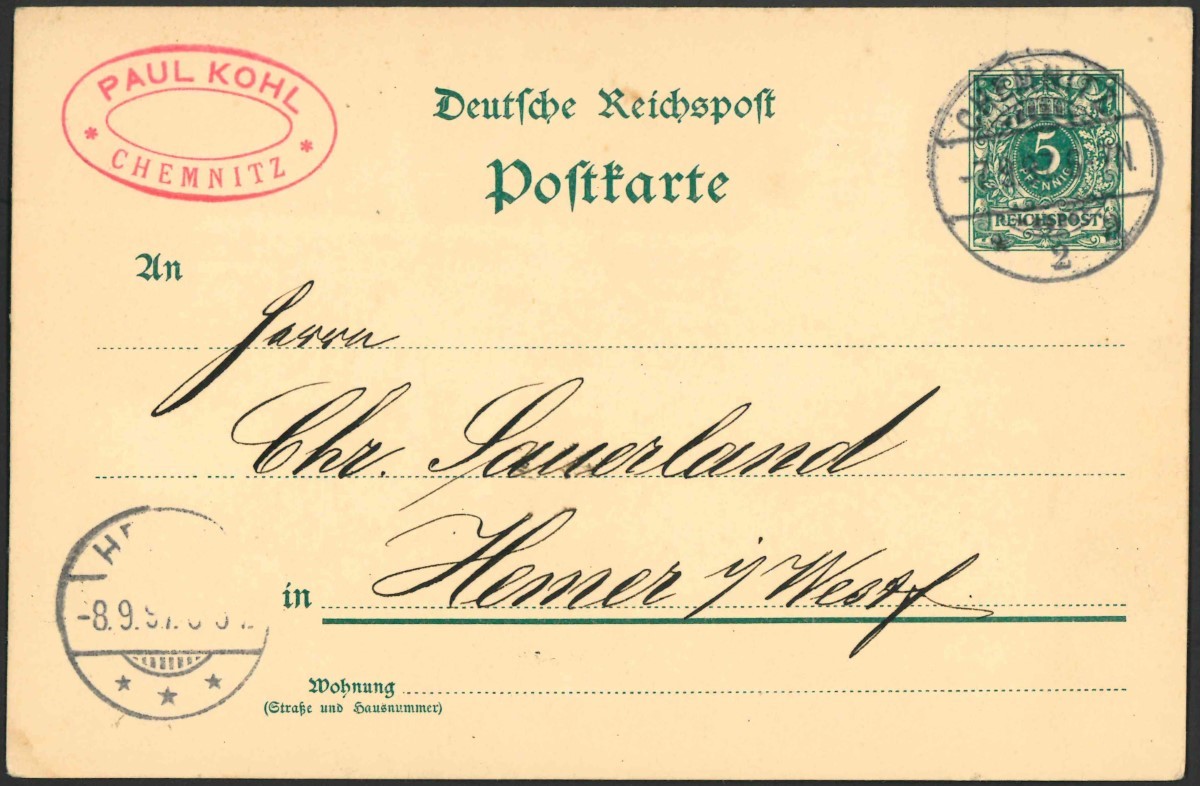 PAUL KOHL
* CHEMNITZ *
Deutsche Reichspost
Postkarte
CHEMNITZ
5
PFENNIG
REICHSPOST
2
An
Herrn
Chr. Sauerland
in Hemer i/Westf
-8.9.97.
Wohnung
(Straße und Hausnummer)